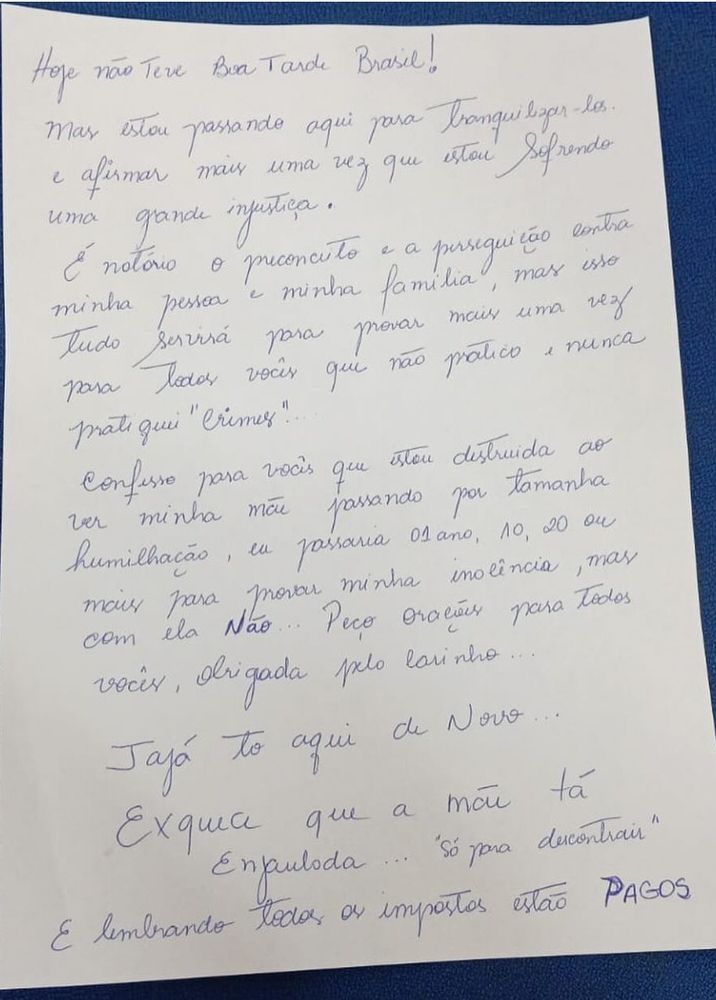 Hoje não Teve Boa Tarde Brasil!
Mas estou passando aqui para Tranquilizar-los.
e afirmar mais uma vez que estou Sofrendo
uma grande injustiça.
É notório o preconceito e a perseguição contra
minha pessoa e minha família, mas isso
tudo servirá para provar mais uma vez
para todos vocês que não pratico e nunca
pratiquei "Crimes"...
Confesso para vocês que estou destruida ao
ver minha mãe passando por tamanha
humilhação, eu passaria 01 ano, 10, 20 ou
mais para provar minha inolência, mas
com ela Não... Peço orações para todos
vocês, Obrigada pelo Carinho...
Jajá to aqui de Novo...
Exquece que a mãe tá
Enjaulada... "Só para descontrair"
E lembrando todos os impostos estão PAGOS